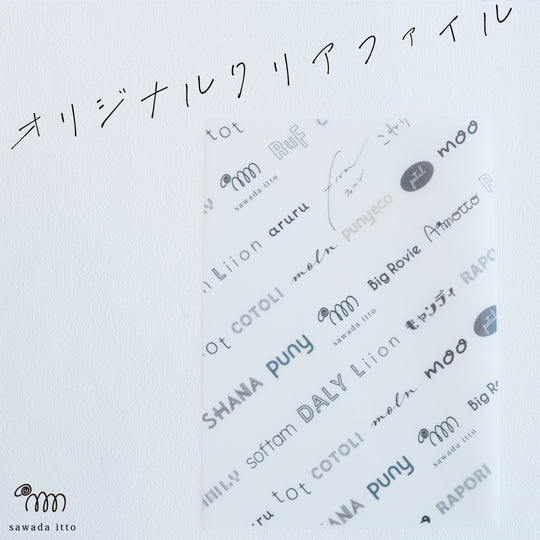 オリジナルクリアファイル
tot
RUF
こねり
moo
sawada itto
from
petal
aruru
punyeco
Liion
moln
Big Rovie
A*motto
tot
COTOLI
sawada itto
キャンディ
RAPO
SHANA
puny
DALY
Liion
moo
petal
softam
moln
tot
COTOLI
sawada itto
Big Ro
ru
SHANA
puny
RAPORI
sawada itto